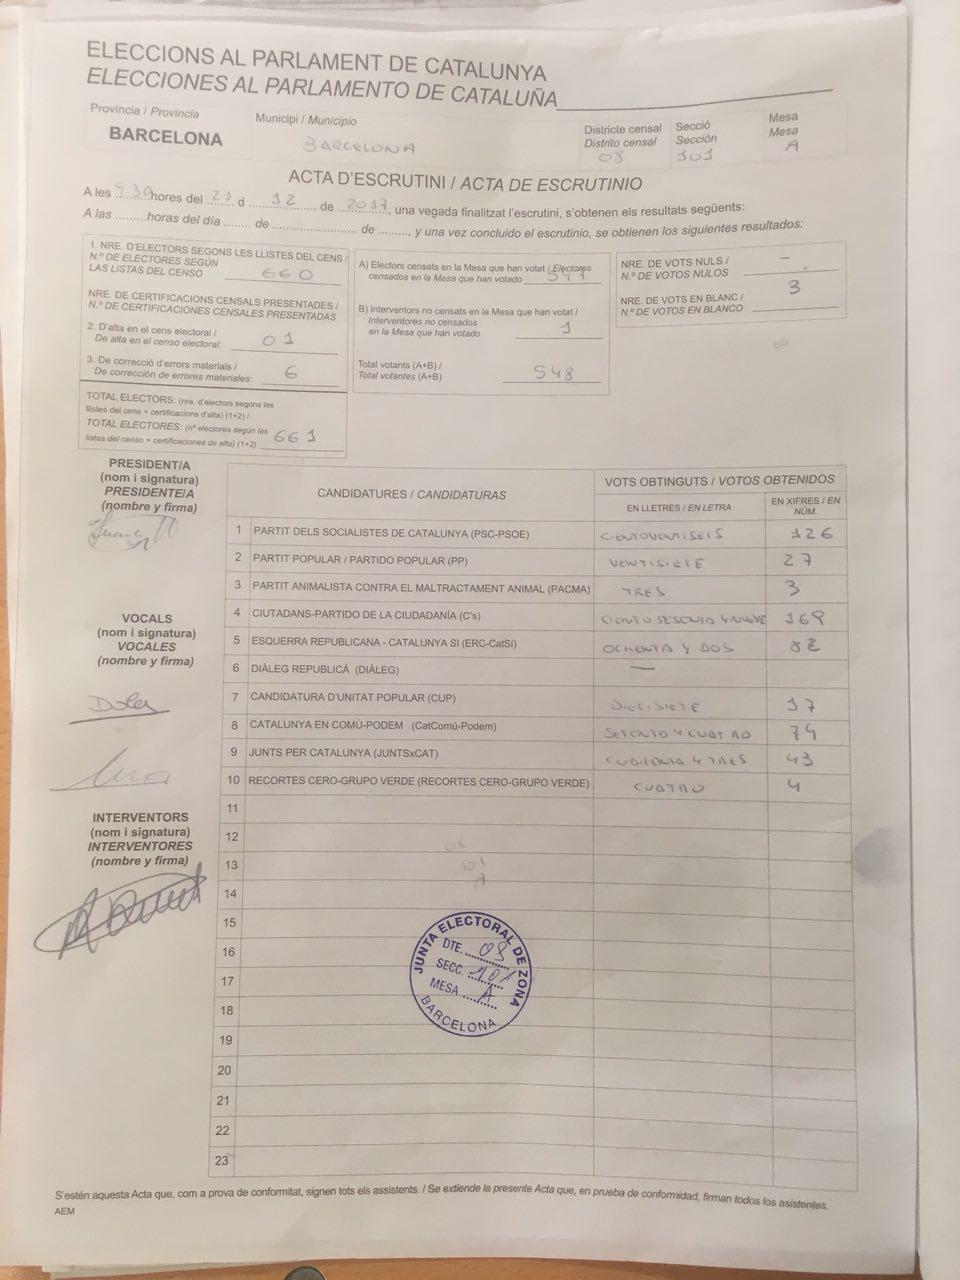 ELECCIONS AL PARLAMENT DE CATALUNYA
ELECCIONES AL PARLAMENTO DE CATALUÑA
Província / Provincia
BARCELONA
Municipi / Municipio
BARCELONA
Districte censal
Distrito censal
08
Secció
Sección
101
Mesa
Mesa
A
ACTA D'ESCRUTINI / ACTA DE ESCRUTINIO
A les 9 30 hores del 21 d 12 de 2017, una vegada finalitzat l'escrutini, s'obtenen els resultats següents:
A las ........horas del día ....... de ............................ de ........, y una vez concluido el escrutinio, se obtienen los siguientes resultados:
1. NRE. D'ELECTORS SEGONS LES LLISTES DEL CENS /
N.º DE ELECTORES SEGÚN
LAS LISTAS DEL CENSO 660
NRE. DE CERTIFICACIONS CENSALS PRESENTADES /
N.º DE CERTIFICACIONES CENSALES PRESENTADAS
2. D'alta en el cens electoral /
De alta en el censo electoral: 01
3. De correcció d'errors materials /
De corrección de errores materiales: 6
TOTAL ELECTORS: (nre. d'electors segons les
llistes del cens + certificacions d'alta) (1+2) /
TOTAL ELECTORES: (nº electores según las
listas del censo + certificaciones de alta) (1+2) 661
A) Electors censats en la Mesa que han votat / Electores
censados en la Mesa que han votado 547
B) Interventors no censats en la Mesa que han votat /
Interventores no censados
en la Mesa que han votado 1
Total votants (A+B) /
Total votantes (A+B) 548
NRE. DE VOTS NULS /
N.º DE VOTOS NULOS —
NRE. DE VOTS EN BLANC /
N.º DE VOTOS EN BLANCO 3
PRESIDENT/A
(nom i signatura)
PRESIDENTE/A
(nombre y firma)
VOCALS
(nom i signatura)
VOCALES
(nombre y firma)
INTERVENTORS
(nom i signatura)
INTERVENTORES
(nombre y firma)
CANDIDATURES / CANDIDATURAS
VOTS OBTINGUTS / VOTOS OBTENIDOS
EN LLETRES / EN LETRA
EN XIFRES / EN NÚM.
1 PARTIT DELS SOCIALISTES DE CATALUNYA (PSC-PSOE) CIENTOVENTISEIS 126
2 PARTIT POPULAR / PARTIDO POPULAR (PP) VENTISIETE 27
3 PARTIT ANIMALISTA CONTRA EL MALTRACTAMENT ANIMAL (PACMA) TRES 3
4 CIUTADANS-PARTIDO DE LA CIUDADANÍA (C's) CIENTO SESENTA Y NUEVE 169
5 ESQUERRA REPUBLICANA - CATALUNYA SI (ERC-CatSí) OCHENTA Y DOS 82
6 DIÀLEG REPUBLICÀ (DIÀLEG) —
7 CANDIDATURA D'UNITAT POPULAR (CUP) DIECISIETE 17
8 CATALUNYA EN COMÚ-PODEM (CatComú-Podem) SETENTA Y CUATRO 74
9 JUNTS PER CATALUNYA (JUNTSxCAT) CUARENTA Y TRES 43
10 RECORTES CERO-GRUPO VERDE (RECORTES CERO-GRUPO VERDE) CUATRO 4
11
12
13
14
15
16
17
18
19
20
21
22
23
JUNTA ELECTORAL DE ZONA
DTE. 08
SECC. 101
MESA A
BARCELONA
S'estén aquesta Acta que, com a prova de conformitat, signen tots els assistents. / Se extiende la presente Acta que, en prueba de conformidad, firman todos los asistentes.
AEM